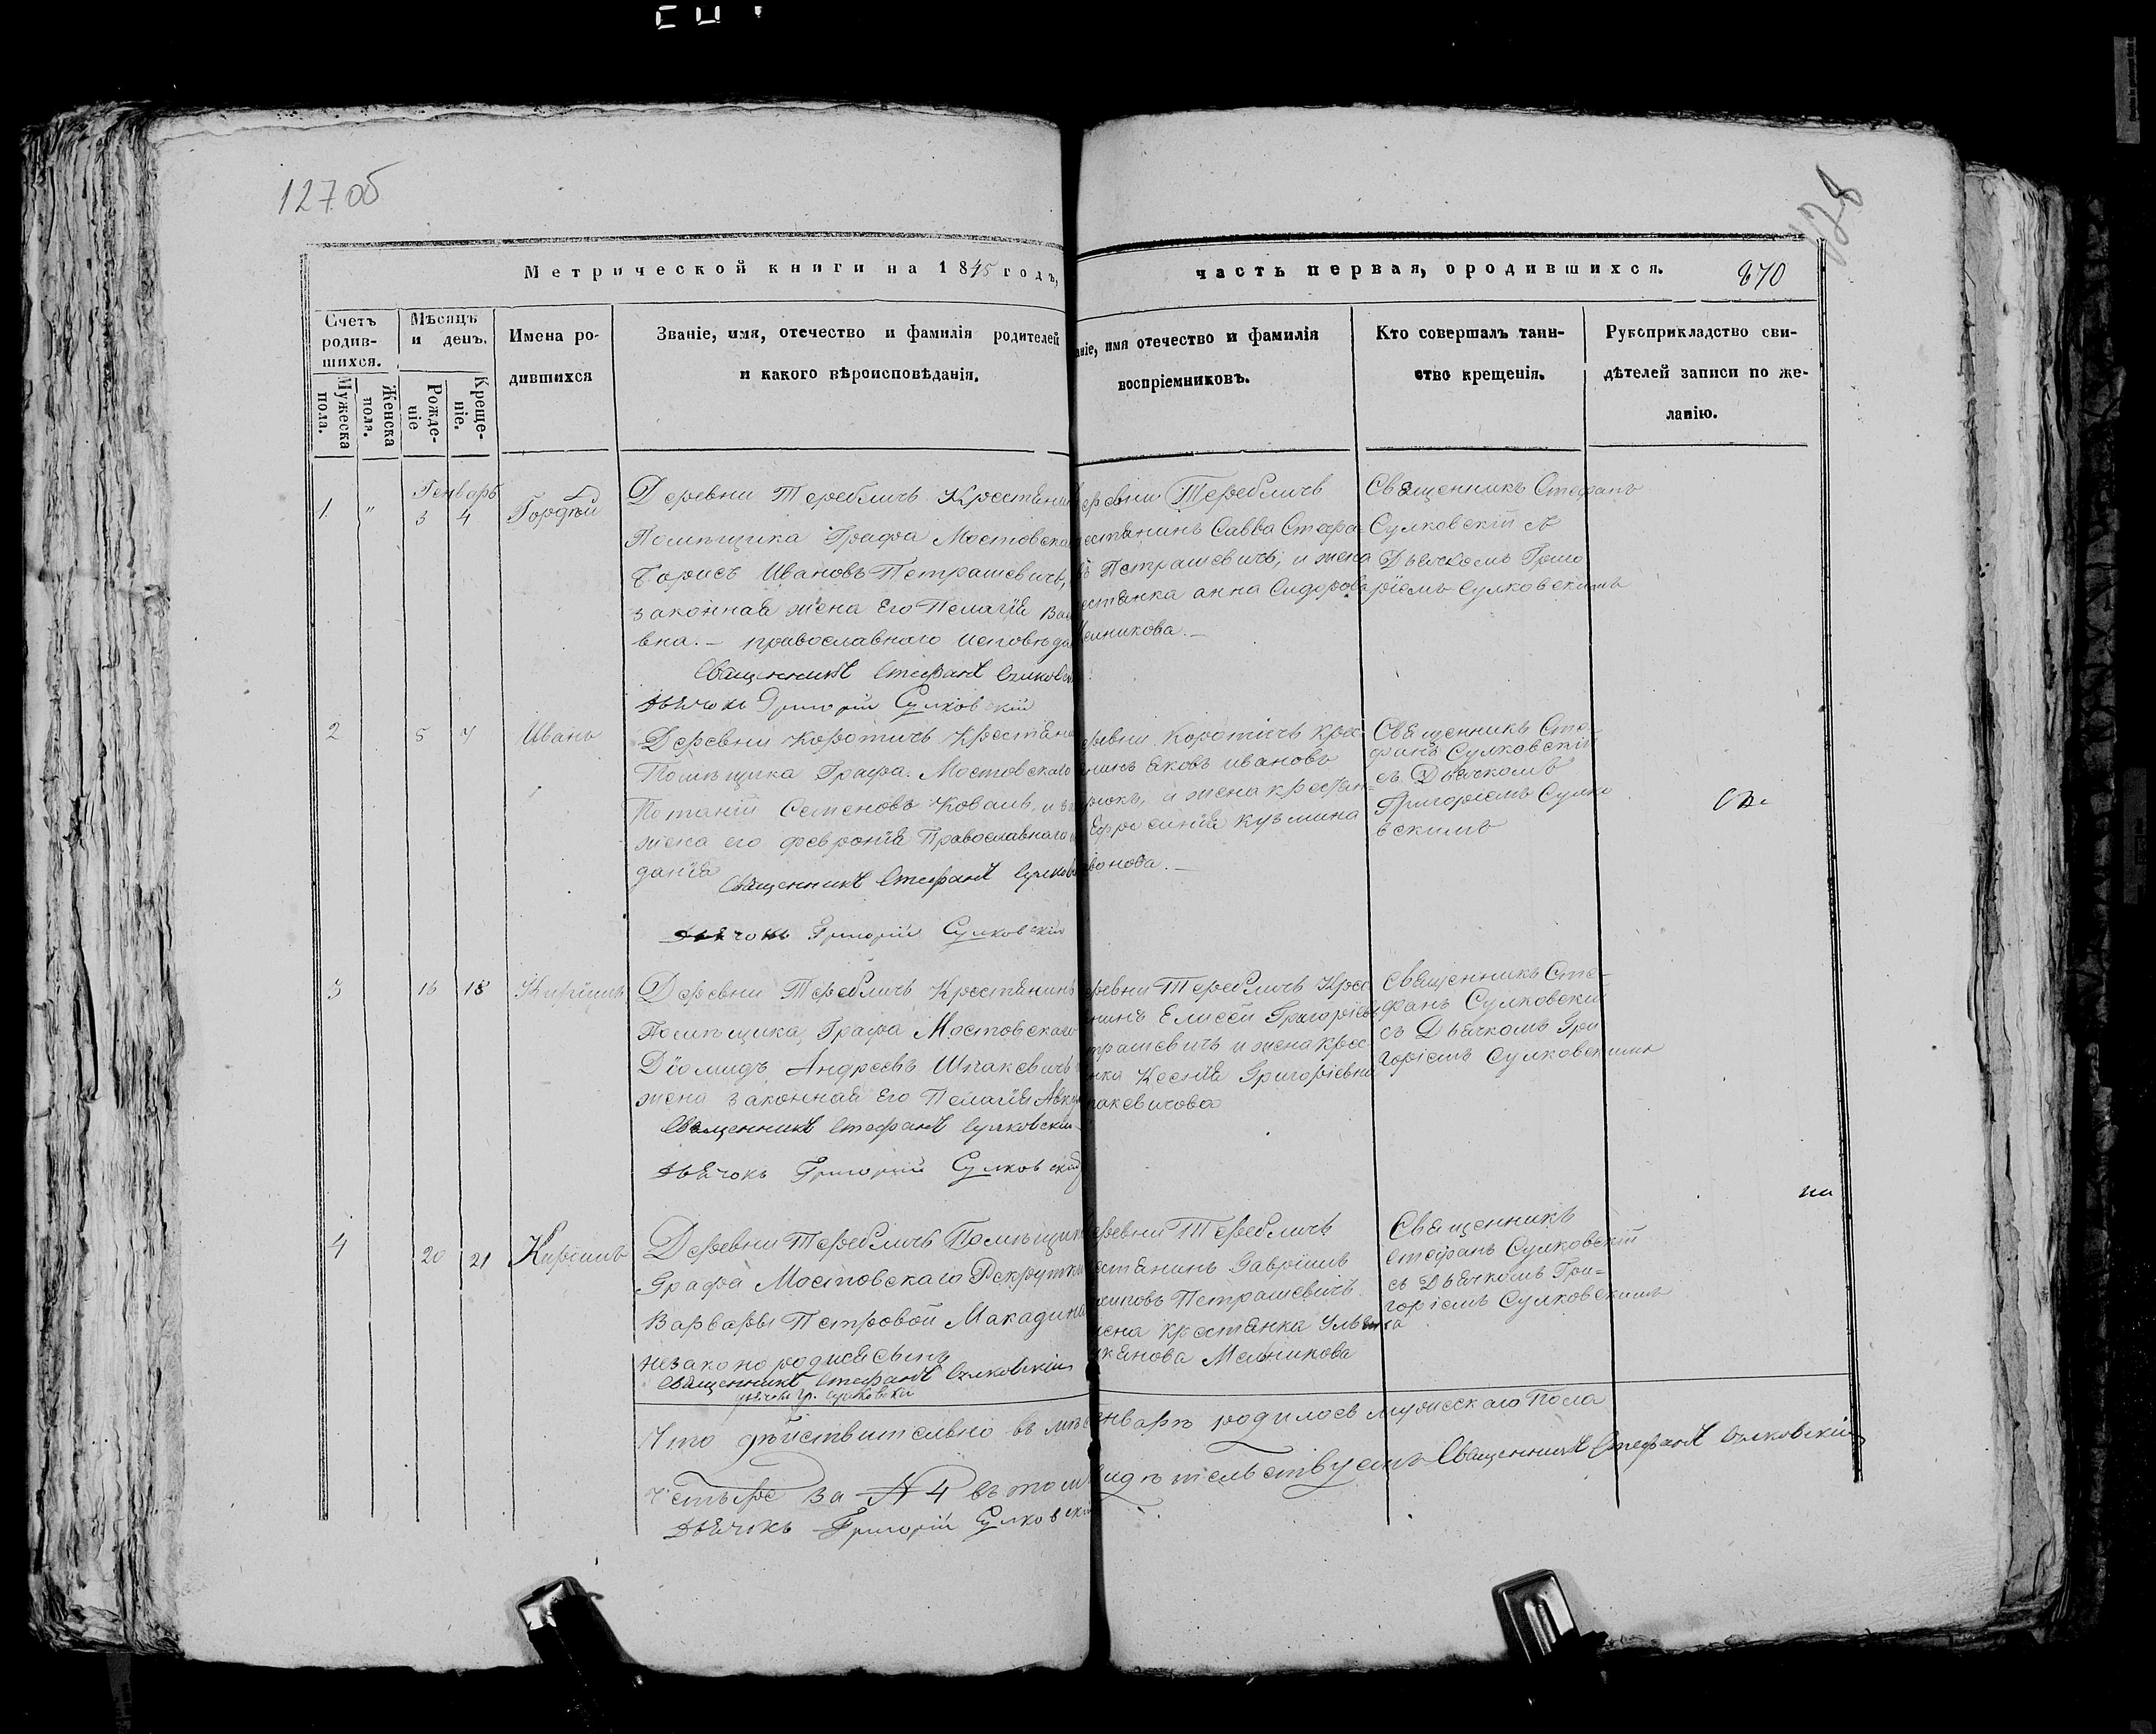 127 об
128
Метрической книги на 1845 годъ,
часть первая, ородившихся.
870
Счетъ родив-
шихся.
Мужеска пола.
Женска пола.
Мѣсяцъ и день.
Рожде-
ніе
Креще-
ніе.
Имена ро-
дившихся
Званіе, имя, отечество и фамилія родителей
и какого вѣроисповѣданія.
аніе, имя отечество и фамилія
воспріемниковъ.
Кто совершалъ таин-
ство крещенія.
Рукоприкладство сви-
дѣтелей записи по же-
ланію.
Генварь
1. " 3 4 Гордѣй
Деревни Теребличъ Крестянин
Помѣщика Графа Мостовска
Борисъ Ивановъ Петрашевичъ,
законная жена Его Пелагія Ва
вна. – православнаго исповѣда
Священникъ Стефанъ Сулковск
Дьячокъ Григорій Сулковскій
еревни Теребличъ
естянинъ Савва Стефа
въ Петрашевичъ, и жена
естянка анна Сидорова
елникова. –
Священникъ Стефанъ
Сулковскій съ
Дьячкомъ Григо
ріемъ Сулковскимъ
2 5 7 Иванъ
Деревни Коротичъ Крестяне
Помѣщика Графа Мостовскаго
Потапій Семеновъ Коваль, и з
жена его Февронія Православнаго
данія
Священникъ Стефанъ Сулков
Дьячокъ Григорій Сулковскій
еревни Коротичъ крес
нинъ Яковъ ивановъ
и жена крестян=
Ефросинія Кузмина
вонова. –
Священникъ Сте
фанъ Сулковскій
съ Дьячкомъ
Григоріемъ Сулко
вскимъ
3 16 18 Кирилъ
Деревни Теребличъ Крестянинъ
Помѣщика Графа Мостовскаго
Діомидъ Андреевъ Шпакевичъ
жена законная Его Пелагія
Священникъ Стефанъ Сулковскій
Дьячокъ Григорій Сулковскій
еревни Теребличъ Крес
нинъ Елисей Григоріевъ
трашевичъ и жена крес
нка Ксенія Григоріевна
пакевичова
Священникъ Сте-
фанъ Сулковскій
съ Дьячкомъ Гри
горіемъ Сулковскимъ
4 20 21 Кирилъ
Деревни Теребличъ Помѣщик
Графа Мостовскаго Рекрутки
Варвары Петровой Макадина
незаконородися сынъ
Священникъ Стефанъ Сулковскій
дьячокъ Гр. Сулковскій
еревни Теребличъ
естянинъ Гавріилъ
Петрашевичъ
жена крестянка Ульяна
Мельникова
Священникъ
Стефанъ Сулковскій
съ Дьячкомъ Гри=
горіемъ Сулковскимъ
Что дѣйствительно въ мѣ енварѣ родилось мужескаго Пола
четыре за № 4 въ том видѣтельствуемъ Священникъ Стефанъ Сулковскій
Дьячокъ Григорій Сулковскій